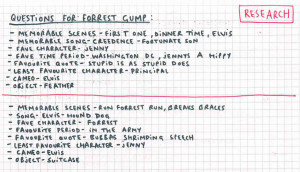 QUESTIONS FOR FORREST GUMP:
RESEARCH
- MEMORABLE SCENES - FIRST ONE, DINNER TIME, ELVIS
- MEMORABLE SONG - CREEDENCE - FORTUNATE SON
- FAVE CHARACTER - JENNY
- FAVE TIME PERIOD - WASHINGTON DC, JENNYS A HIPPY
- FAVOURITE QUOTE - STUPID IS AS STUPID DOES
- LEAST FAVOURITE CHARACTER - PRINCIPAL
- CAMEO - ELVIS
- OBJECT - FEATHER
- MEMORABLE SCENES - RUN FORREST RUN, BREAKS BRACES
- SONG - ELVIS - HOUND DOG
- FAVE CHARACTER - FORREST
- FAVOURITE PERIOD - IN THE ARMY
- FAVOURITE QUOTE - BUBBAS SHRIMPING SPEECH
- LEAST FAVOURITE CHARACTER - JENNY
- CAMEO - ELVIS
- OBJECT - SUITCASE